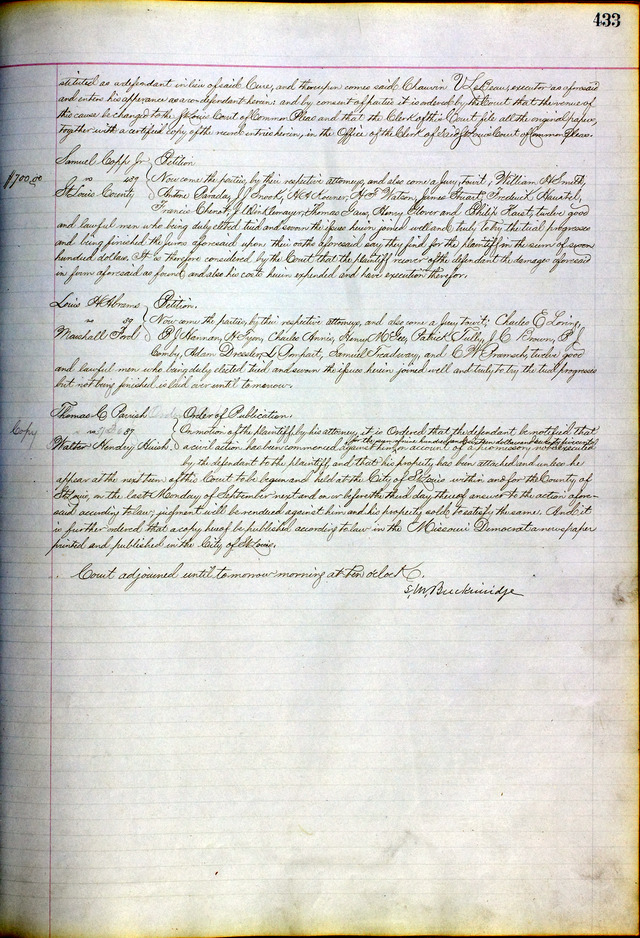 433
stituted as a defendant in lieu of said Cure, and thereupon comes said Chauvin V LeBeau, executor as aforesaid
and enters his apperance as a co defendant herein: and by consent of parties it is ordered by the Court that the venue of
this cause be changed to the St Louis Court of Common Pleas and that the Clerk of this Court file all the original papers,
together with a certified copy of the record entries herein, in the Office of the Clerk of said St Louis Court of Common Pleas.
Samuel Copp Jr } Petition
$700.00 vs 107 } Now come the parties, by their respective attorneys, and also come a Jury, towit, William H Smith,
St Louis County } Antone J J Snook, H Watson, James Stuart, Frederick
Francis Thomas Henry Glover and Philip twelve good
and lawful men who being duly elected tried and sworn the issues herein joined well and truly to try the trial progresses
and being finished the jurors aforesaid upon their oaths aforesaid say they find for the plaintiff in the sum of seven
hundred dollars. It is therefore considered by the Court that the plaintiff recover of the defendant the damages aforesaid
in form aforesaid as found and also his costs herein expended and have execution therefor.
Louis H Abrams } Petition.
vs 29 } Now come the parties, by their respective attorneys, and also come a Jury, towit; Charles E Loring,
Marshall Ford } P J Hannan, Charles Annis, Henry McKee, Patrick Tully, J C Brown, P J
Comby, Adam Samuel Treadway, and C W twelve good
and lawful men who being duly elected tried and sworn the issues herein joined well and truly to try the trial progresses
but not being finished is laid over until tomorrow.
Thomas C Parish } Order of Publication.
Copy vs 37 } On motion of the plaintiff by his attorney, it is Ordered that the defendant, be notified that
for the sum of nine hundred and dollars and
Walter Hendry Huish } a civil action has been commenced against him on account of a promissory note executed
by the defendant to the plaintiff, and that his property has been attached and unless he
appear at the next term of this Court to be begun and held at the City of St Louis within and for the County of
St Louis, on the last Monday of September next and on or before the third day thereof answer to the action afore-
said according to law, judgment will be rendered against him and his property sold to satisfy the same. And it
is further ordered that a copy hereof be published according to law in the Missouri Democrat a newspaper
printed and published in the City of St Louis.
Court adjourned until tomorrow morning at ten o'clock.
S. M. Breckinridge